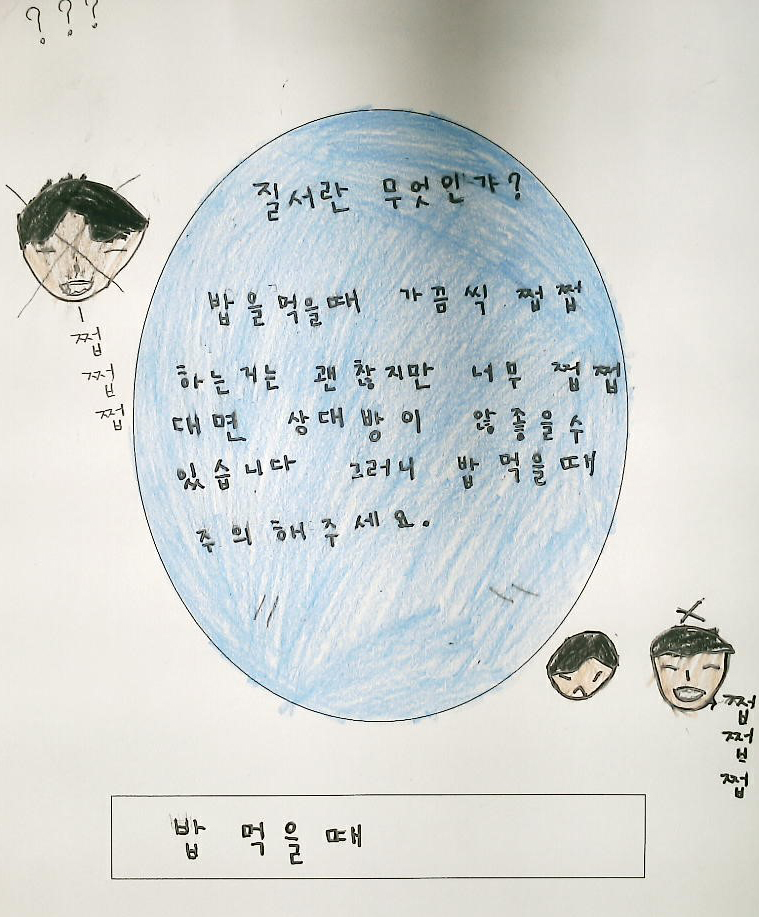 ???
질서란 무엇인가?
밥을먹을때 가끔씩 쩝쩝
하는거는 괜찮지만 너무 쩝쩝
대면 상대방이 않좋을수
있습니다 그러니 밥 먹을때
주의해주세요.
쩝
쩝
쩝
쩝
쩝
쩝
밥 먹을때